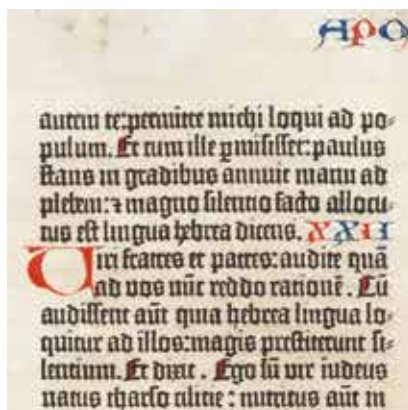 APO
autem te: permitte michi loqui ad po-
pulum. Et cum ille ꝑmisisset: paulus
stans in gradibus annuit manu ad
plebem: ⁊ magno silentio facto allocu-
tus est lingua hebrea dicens. XXII
Viri fratres et patres: audite quā
ad vos nūc reddo rationē. Cū
audissent aūt quia hebrea lingua lo-
quitur ad illos: magis prestiterunt si-
lentium. Et dixit. Ego sū vir iudeus
natus tharso cilicie: nutritus aūt in